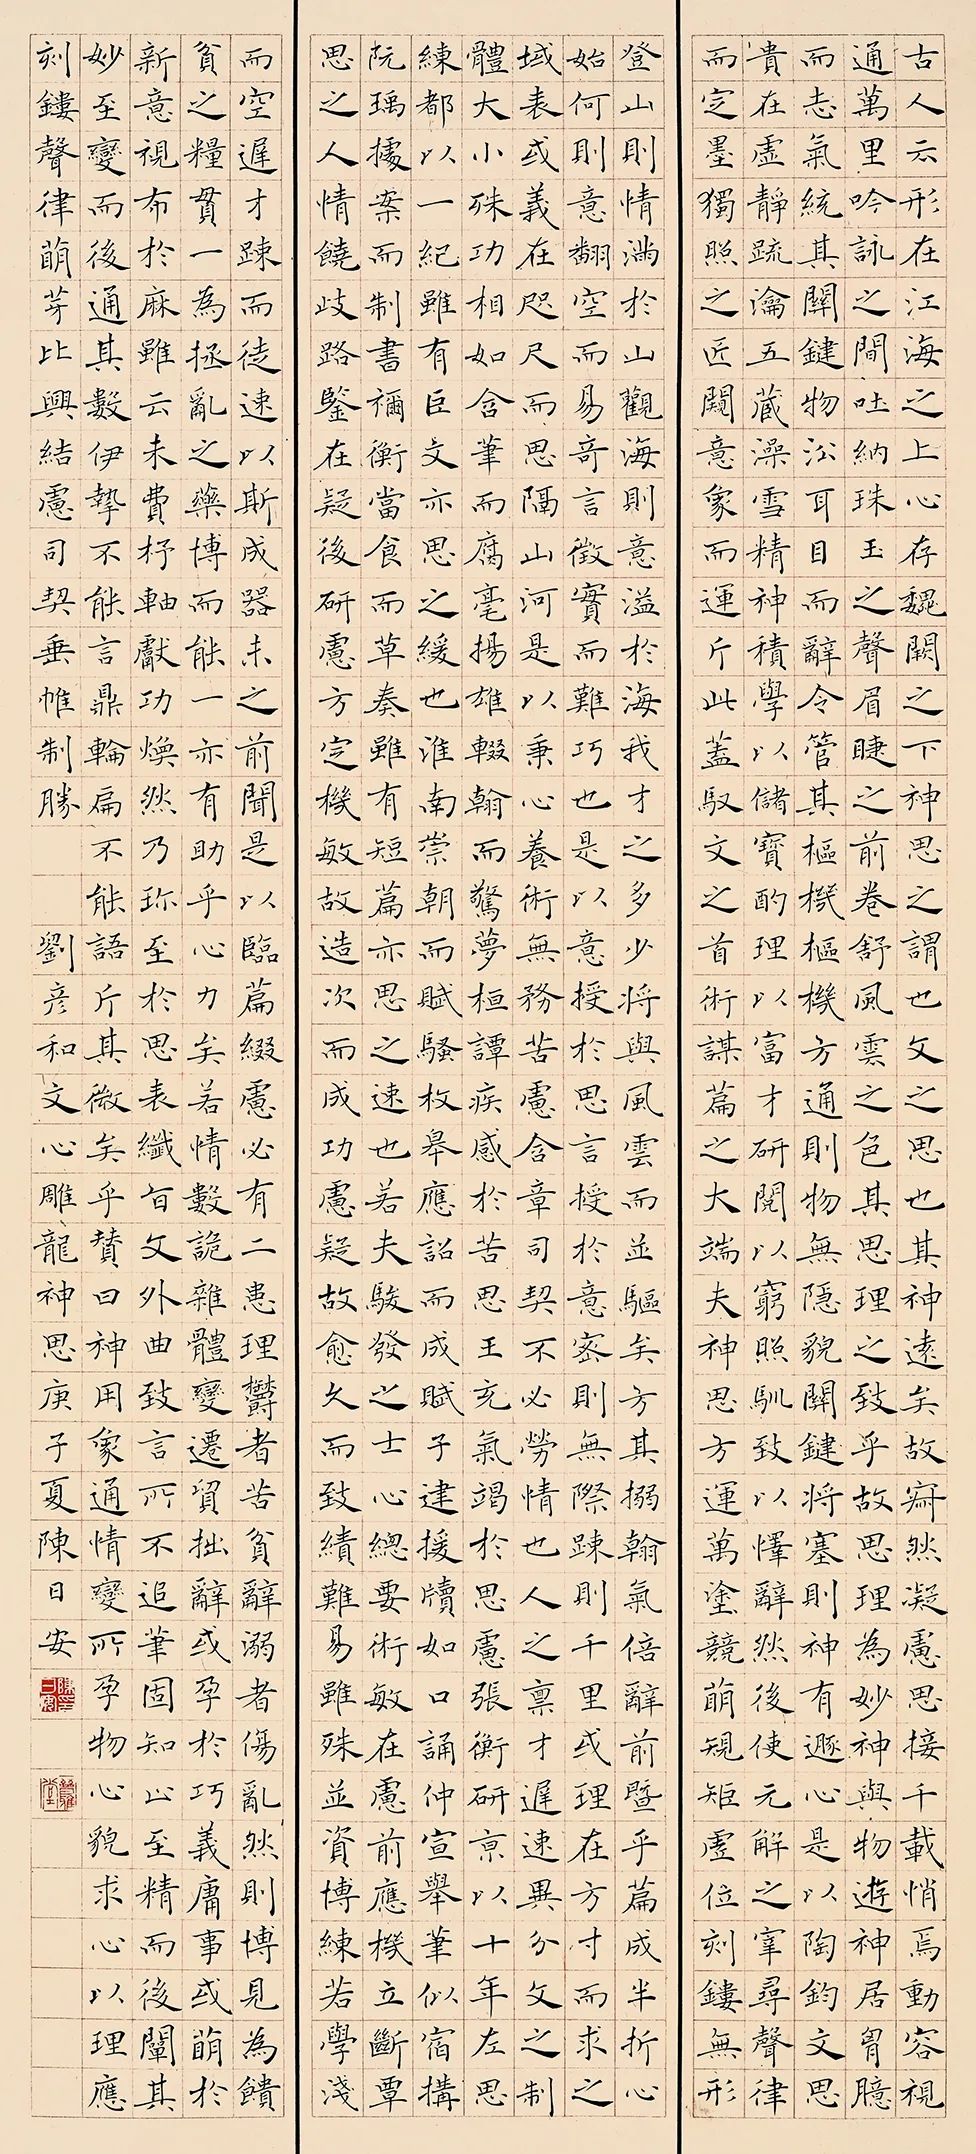 古人云形在江海之上心存魏闕之下神思之謂也文之思也其神遠矣故寂然凝慮思接千載悄焉動容視
通萬里吟詠之間吐納珠玉之聲眉睫之前卷舒風雲之色其思理之致乎故思理為妙神與物遊神居胷臆
而志氣統其關鍵物沿耳目而辭令管其樞機樞機方通則物無隱貌關鍵將塞則神有遯心是以陶鈞文思
貴在虛靜疏瀹五藏澡雪精神積學以儲寶酌理以富才研閱以窮照馴致以懌辭然後使元解之宰尋聲律
而定墨獨照之匠闚意象而運斤此蓋馭文之首術謀篇之大端夫神思方運萬塗競萌規矩虛位刻鏤無形
登山則情滿於山觀海則意溢於海我才之多少將與風雲而並驅矣方其搦翰氣倍辭前暨乎篇成半折心
始何則意翻空而易奇言徵實而難巧也是以意授於思言授於意密則無際踈則千里或理在方寸而求之
域表或義在咫尺而思隔山河是以秉心養術無務苦慮含章司契不必勞情也人之稟才遲速異分文之制
體大小殊功相如含筆而腐毫揚雄輟翰而驚夢桓譚疾感於苦思王充氣竭於思慮張衡研京以十年左思
練都以一紀雖有巨文亦思之緩也淮南崇朝而賦騷枚皋應詔而成賦子建援牘如口誦仲宣舉筆似宿搆
阮瑀據案而制書禰衡當食而草奏雖有短篇亦思之速也若夫駿發之士心總要術敏在慮前應機立斷覃
思之人情饒歧路鑒在疑後研慮方定機敏故造次而成功慮疑故愈久而致績難易雖殊並資博練若學淺
而空遲才踈而徒速以斯成器未之前聞是以臨篇綴慮必有二患理鬱者苦貧辭溺者傷亂然則博見為饋
貧之糧貫一為拯亂之藥博而能一亦有助乎心力矣若情數詭雜體變遷貿拙辭或孕於巧義庸事或萌於
新意視布於麻雖云未費杼軸獻功煥然乃珍至於思表纖旨文外曲致言所不追筆固知止至精而後闡其
妙至變而後通其數伊摯不能言鼎輪扁不能語斤其微矣乎贊曰神用象通情變所孕物心貌求心以理應
刻鏤聲律萌芽比興結慮司契垂帷制勝 劉彥和文心雕龍神思庚子夏陳日安